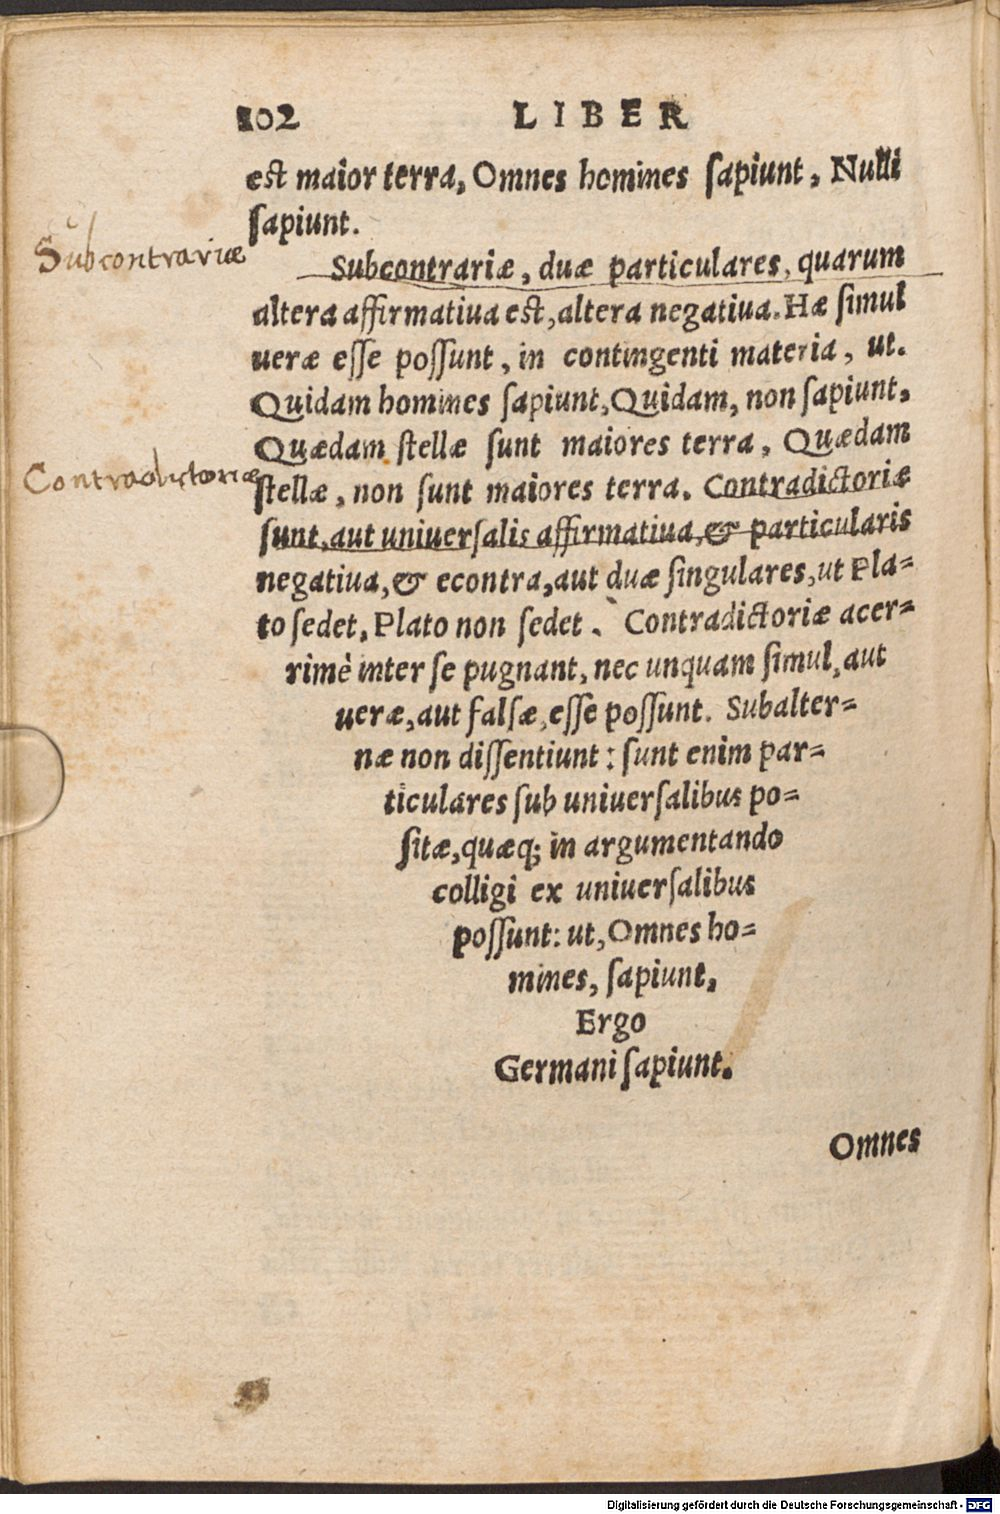 102 LIBER
est maior terra, Omnes homines ſapiunt, Nulli
ſapiunt.
Subcontrariæ
Subcontrariæ, duæ particulares, quarum
altera affirmatiua est, altera negatiua. Hæ ſimul
ueræ eſſe poſſunt, in contingenti materia, ut.
Quidam homines ſapiunt, Quidam, non ſapiunt,
Quædam ſtellæ ſunt maiores terra, Quædam
Contradictoriæ
ſtellæ, non ſunt maiores terra. Contradictoriæ
ſunt, aut uniuerſalis affirmatiua, & particularis
negatiua, & econtra, aut duæ ſingulares, ut Pla=
to ſedet, Plato non ſedet. Contradictoriæ acer=
rimè inter ſe pugnant, nec unquam ſimul, aut
ueræ, aut falſæ, eſſe poſſunt. Subalter=
næ non diſſentiunt: ſunt enim par=
ticulares ſub uniuerſalibus po=
ſitæ, quæq; in argumentando
colligi ex uniuerſalibus
poſſunt: ut, Omnes ho=
mines, ſapiunt,
Ergo
Germani ſapiunt.
Omnes
Digitalisierung gefördert durch die Deutsche Forschungsgemeinschaft - DFG